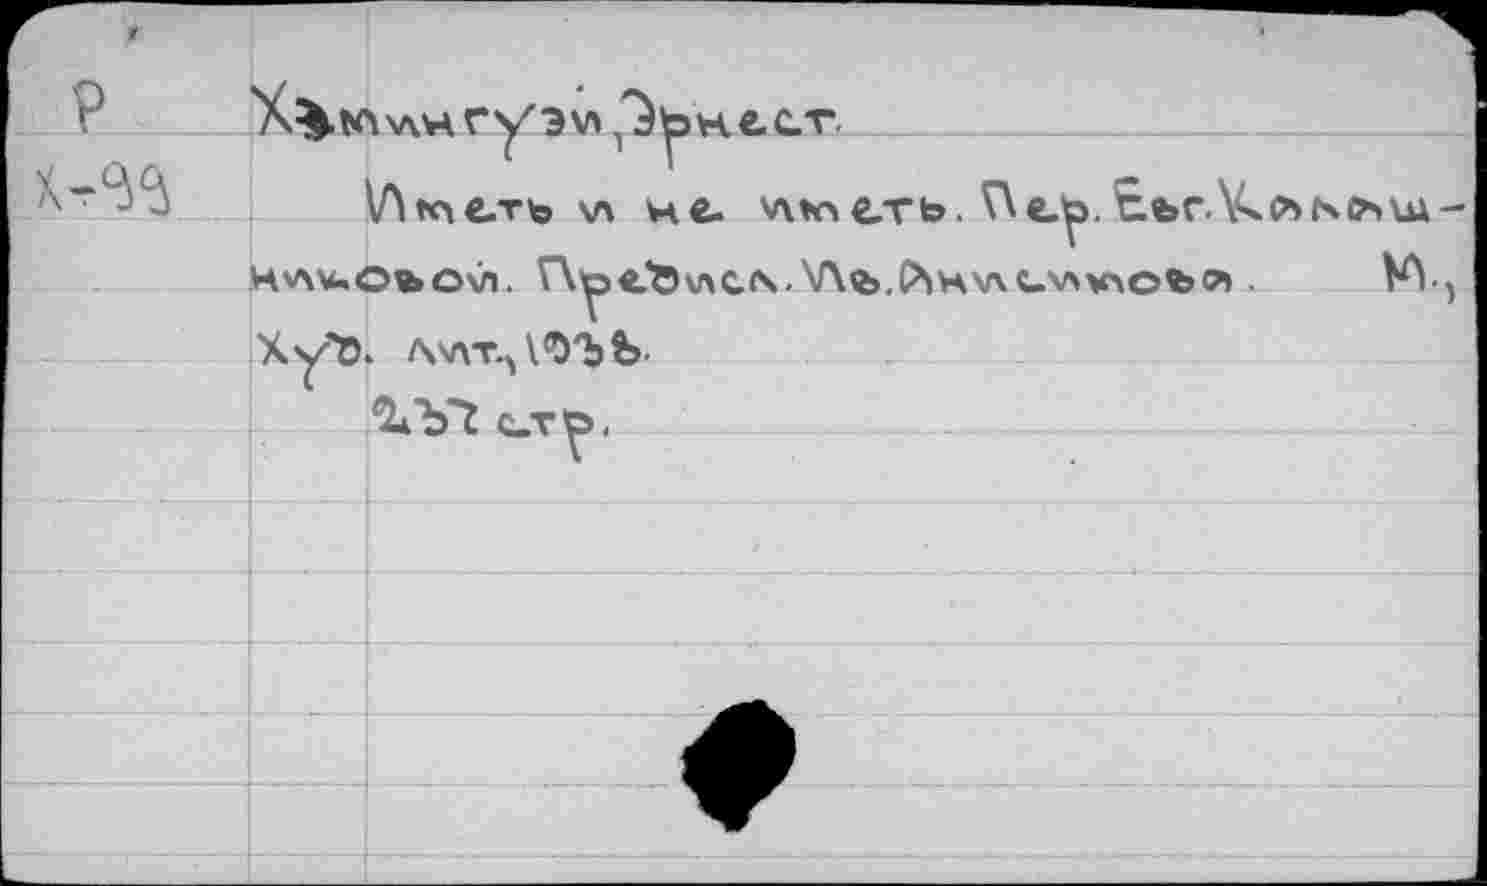 Р
Х-99
Хэмингуэй, Эрнест.
Иметь и не иметь. Пер. Евг. Калаши-
никовой. Предисл. Ив. Анисимова. М.,
Худ. лит., 1938.
237 стр.